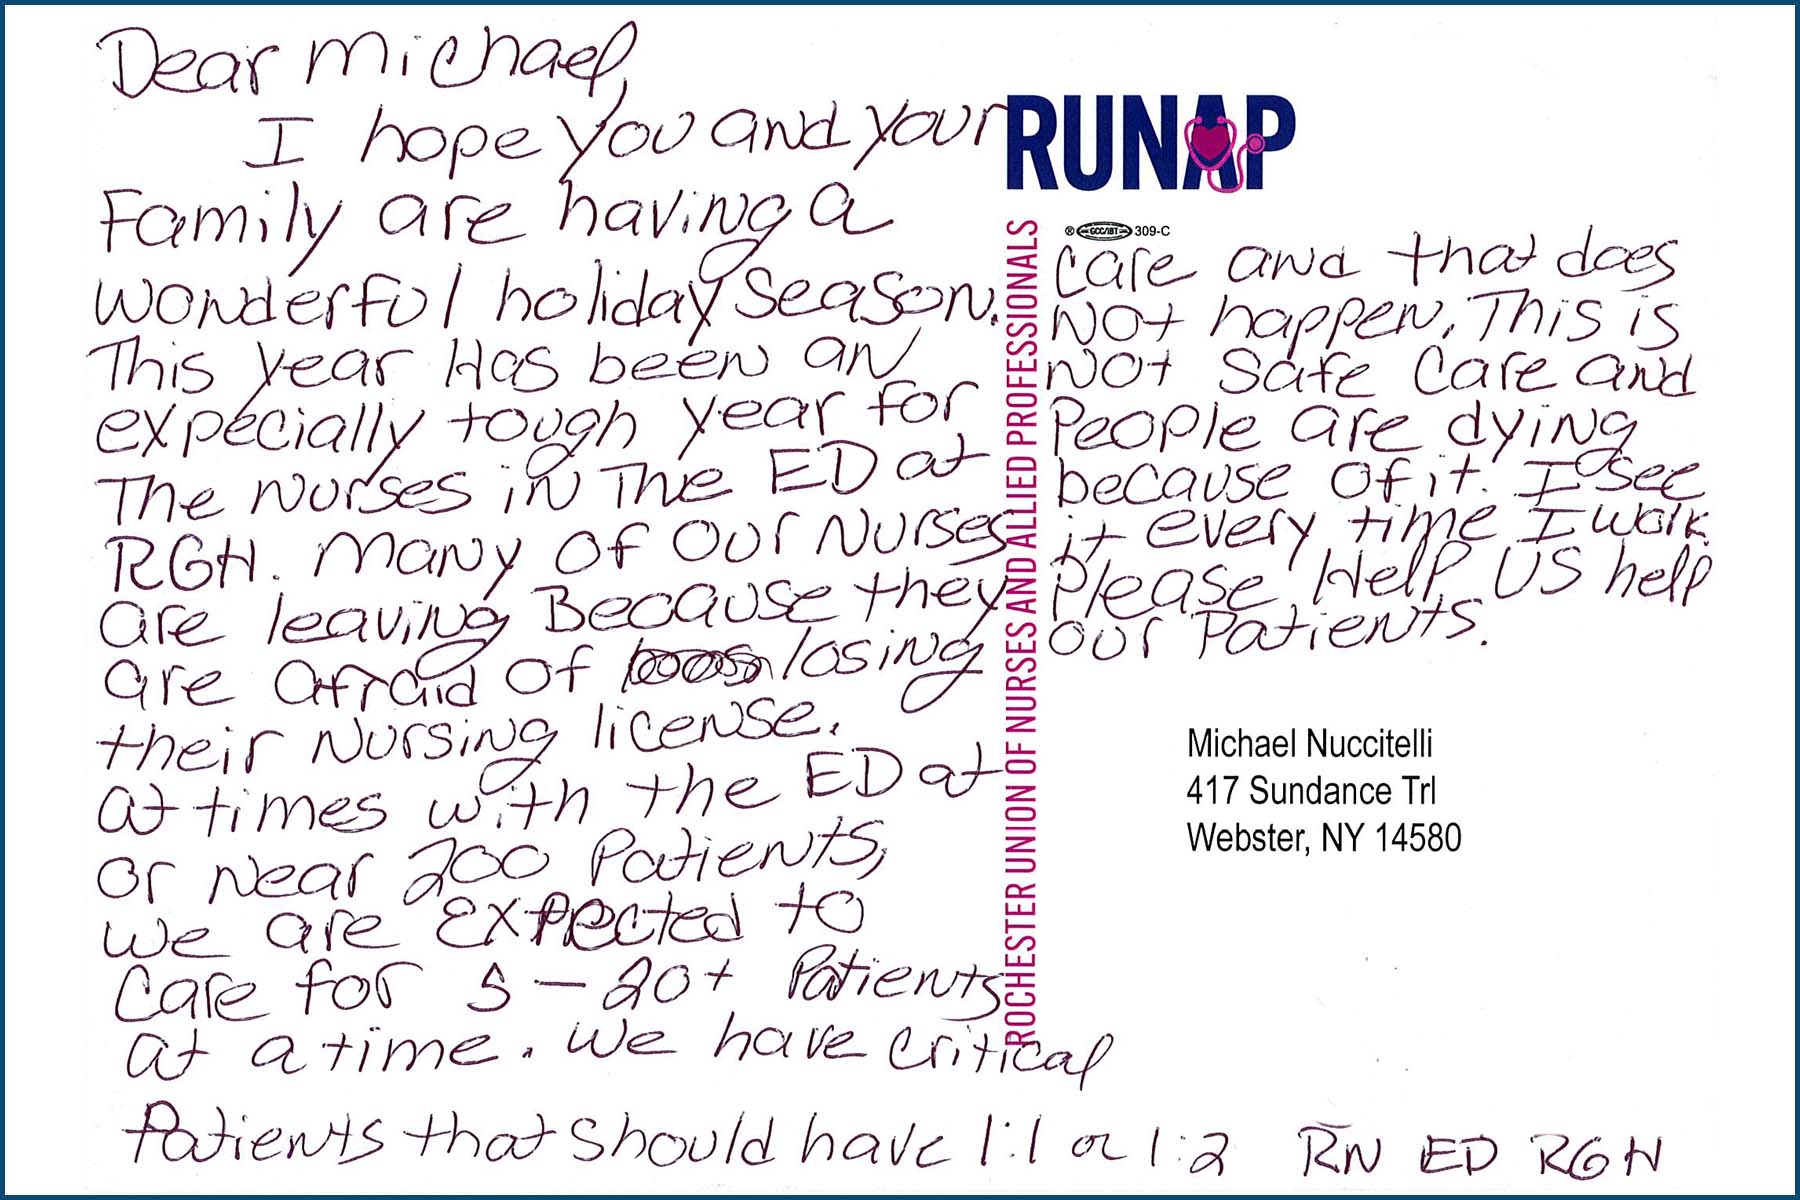 Dear Michael,
I hope you and your
Family are having a
wonderful holiday season.
This year Has been an
expecially tough year for
The Nurses in The ED at
RGH. Many of our Nurses
are leaving Because they
are afraid of losing
their Nursing license.
At times with the ED at
or Near 200 Patients,
we are expected to
Care for 5-20+ Patients
at a time. We have critical
Patients that should have 1:1 or 1:2
RUNAP
ROCHESTER UNION OF NURSES AND ALLIED PROFESSIONALS
® GCC/IBT 309-C
Care and that does
Not happen. This is
Not Safe Care and
People are dying
because of it. I see
it every time I work.
Please Help US help
our Patients.
Michael Nuccitelli
417 Sundance Trl
Webster, NY 14580
RN ED RGH